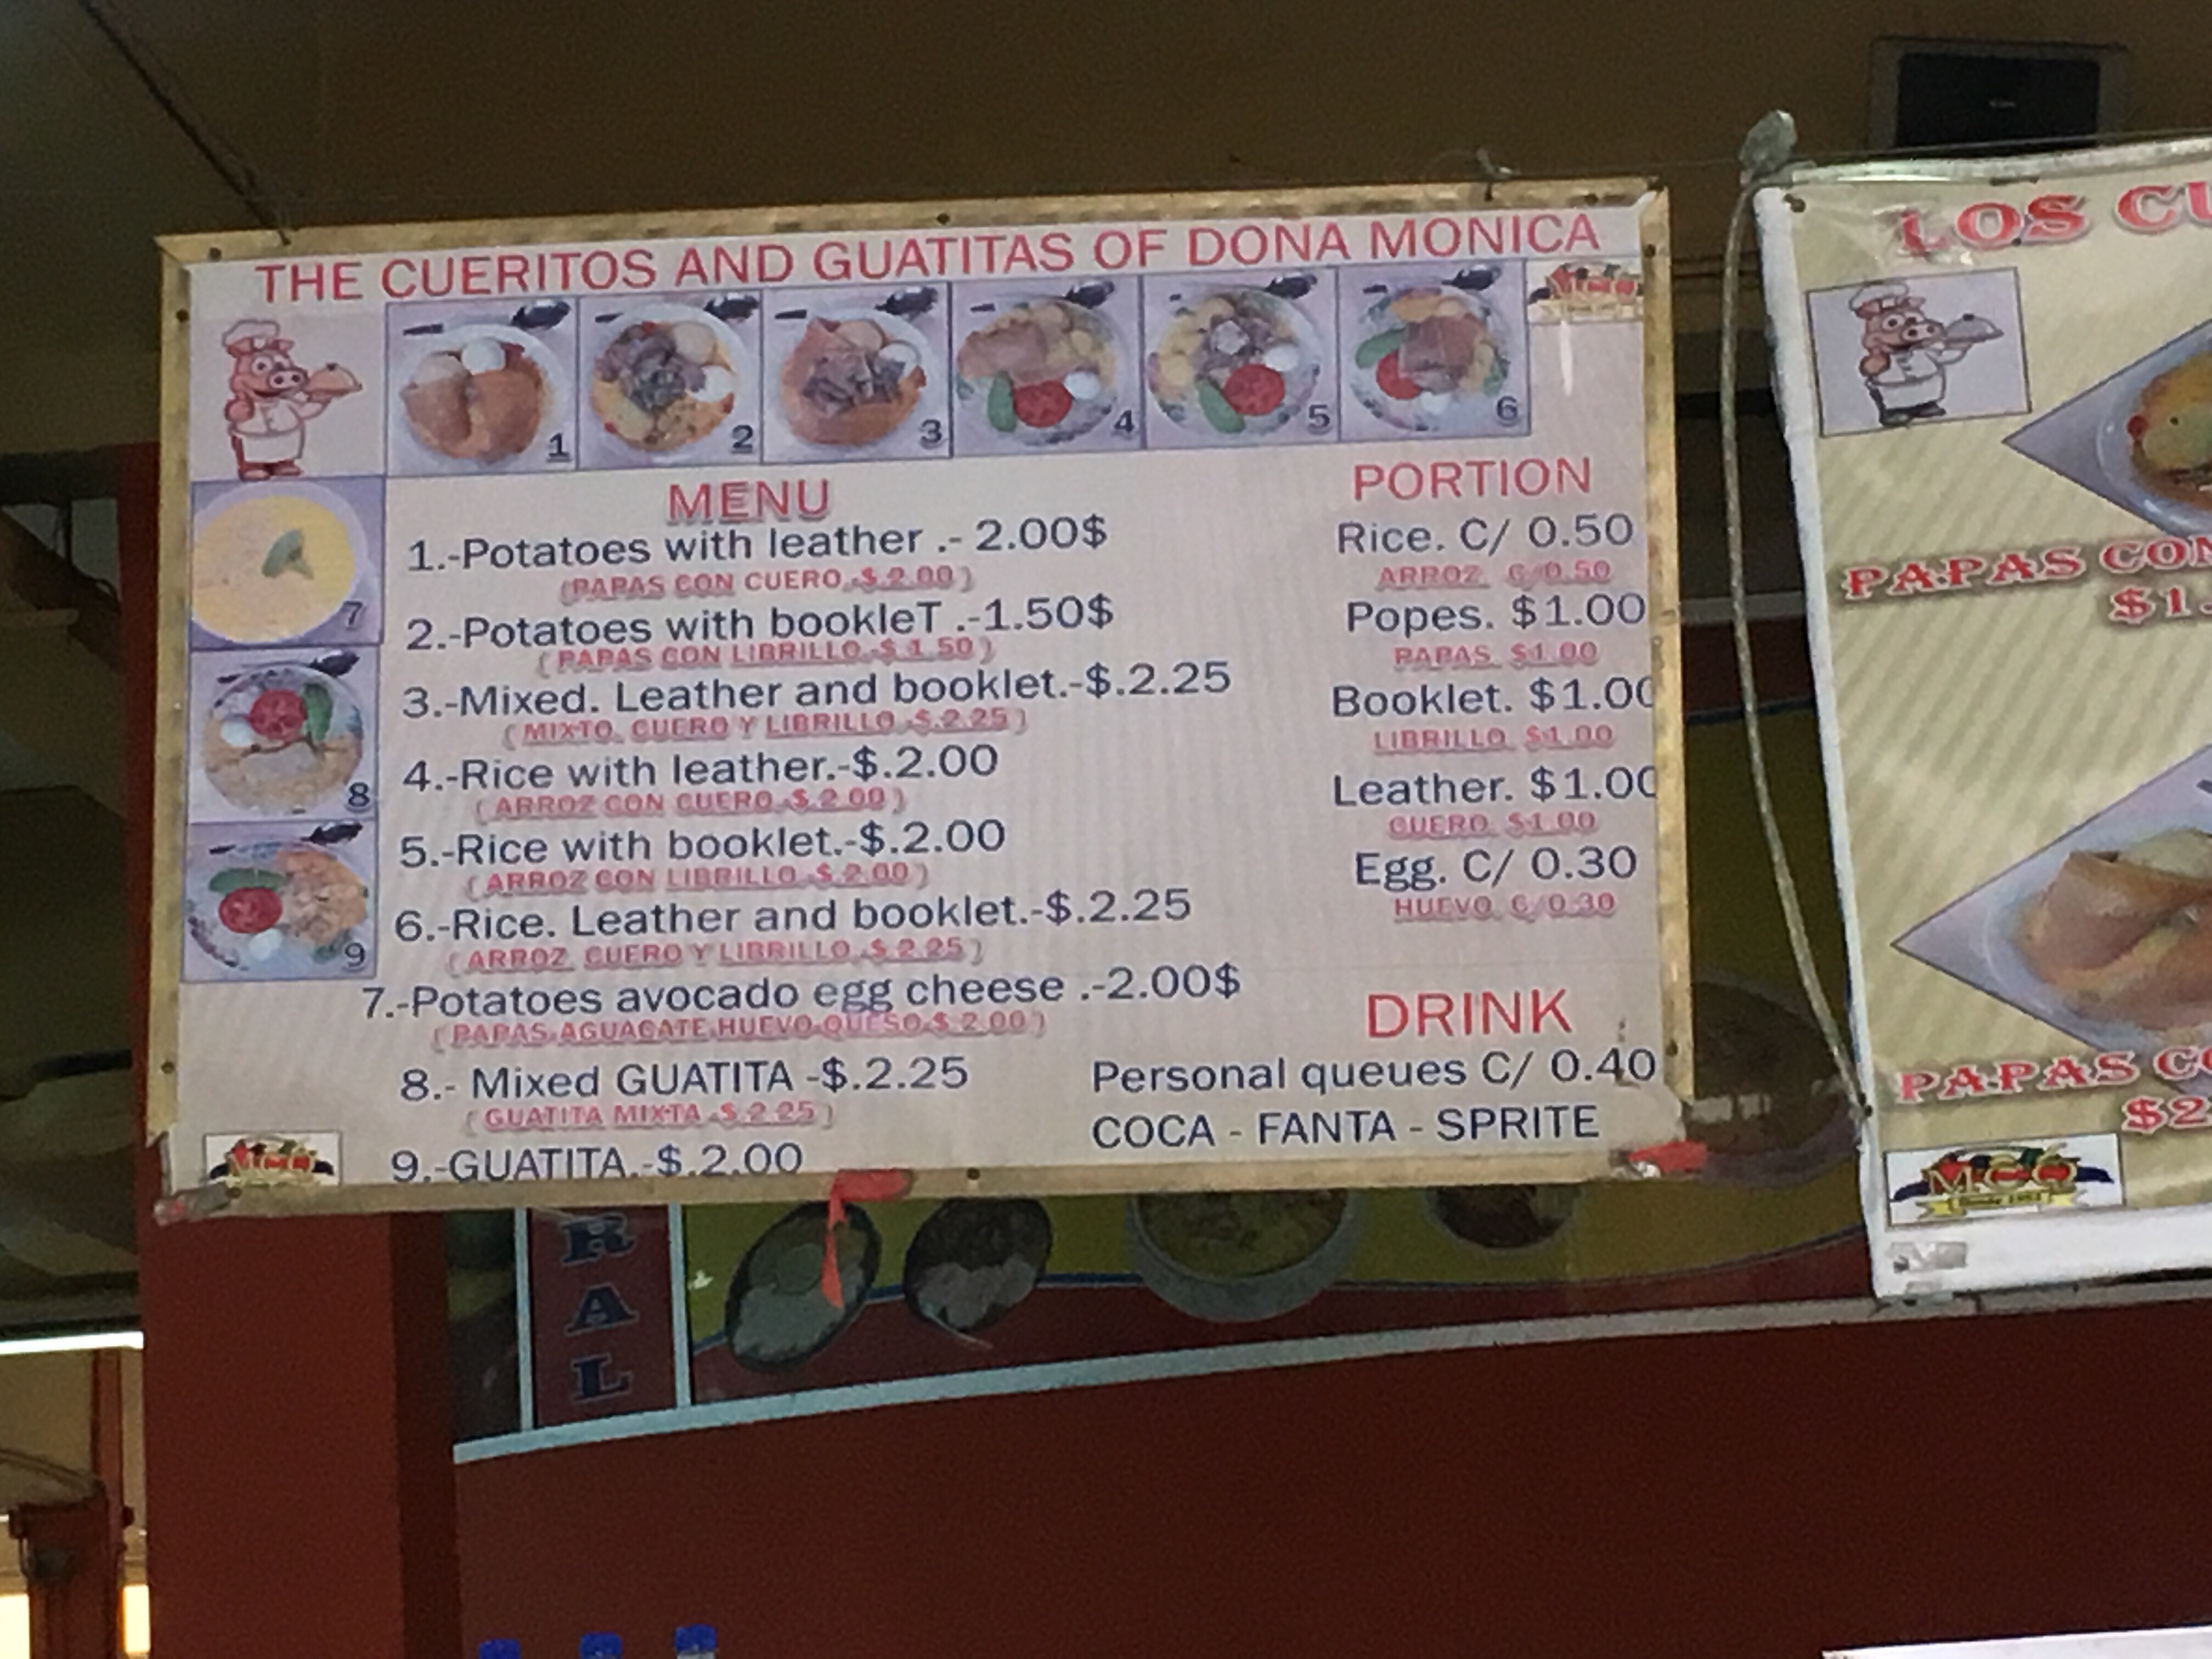 THE CUERITOS AND GUATITAS OF DONA MONICA
1
2
3
4
5
6
7
8
9
MENU
1.-Potatoes with leather .- 2.00$
(PAPAS CON CUERO.-$.2.00)
2.-Potatoes with bookleT .-1.50$
(PAPAS CON LIBRILLO.-$ 1.50)
3.-Mixed. Leather and booklet.-$.2.25
(MIXTO. CUERO Y LIBRILLO.-$.2.25)
4.-Rice with leather.-$.2.00
(ARROZ CON CUERO.-$.2.00)
5.-Rice with booklet.-$.2.00
(ARROZ CON LIBRILLO.-$.2.00)
6.-Rice. Leather and booklet.-$.2.25
(ARROZ. CUERO Y LIBRILLO.-$.2.25)
7.-Potatoes avocado egg cheese .-2.00$
(PAPAS AGUACATE HUEVO QUESO-$.2.00)
8.- Mixed GUATITA -$.2.25
(GUATITA MIXTA.-$.2.25)
9.-GUATITA.-$.2.00
PORTION
Rice. C/ 0.50
ARROZ. C/0.50
Popes. $1.00
PAPAS. $1.00
Booklet. $1.00
LIBRILLO. $1.00
Leather. $1.00
CUERO. $1.00
Egg. C/ 0.30
HUEVO. C/0.30
DRINK
Personal queues C/ 0.40
COCA - FANTA - SPRITE
LOS CU
PAPAS CON
$1.
PAPAS CO
$2
MCO
RAL